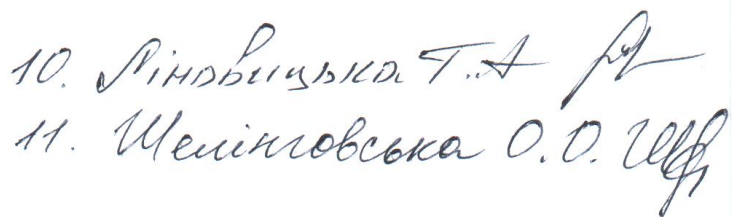 10. Ліновицька Т.А
11. Шелінговська О.О.